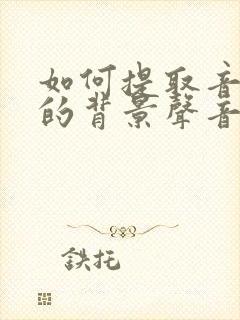 如何提取音
的背景聲音
鉄托